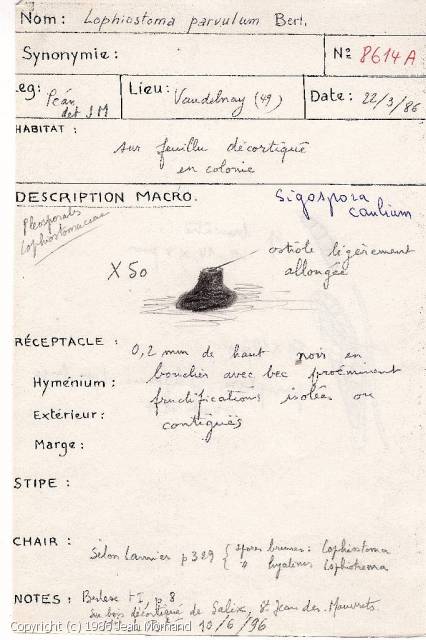 Nom : Lophiostoma parvulum Berl.
Synonymie :
Nº 8614 A
Leg: Péan
det JM
Lieu : Vaudelnay (49)
Date : 22/3/86
HABITAT :
sur feuillu décortiqué
en colonie
DESCRIPTION MACRO.
Sigospora
caulium
Pleosporales
Lophiostomaceae
X 50
ostiole légèrement
allongée
RÉCEPTACLE : 0,2 mm de haut noir en
Hyménium : bouchier avec bec proéminent
Extérieur : fructifications isolées ou
contiguës
Marge :
STIPE :
CHAIR :
Selon Lannier p 329 { spores brunes : Lophiostoma
" hyalines Lophiotrema
NOTES : Berlese t I, p 8
Sur bois décortiqué de Salix, St Jean des Mauvrets
10/6/96
Copyright (c) 1986 Jean Mornand